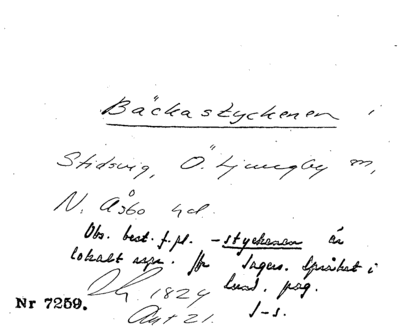 Bäckastyckenen i
Stidsvig, Ö. Ljungby sn,
N. Åsbo hd.
Obs. best. f. pl. -styckenen är
lokalt uspr. Jfr Ingers. Språket i
Lund. pag.
Lh. 1824
Akt 21. I-s.
Nr 7259.